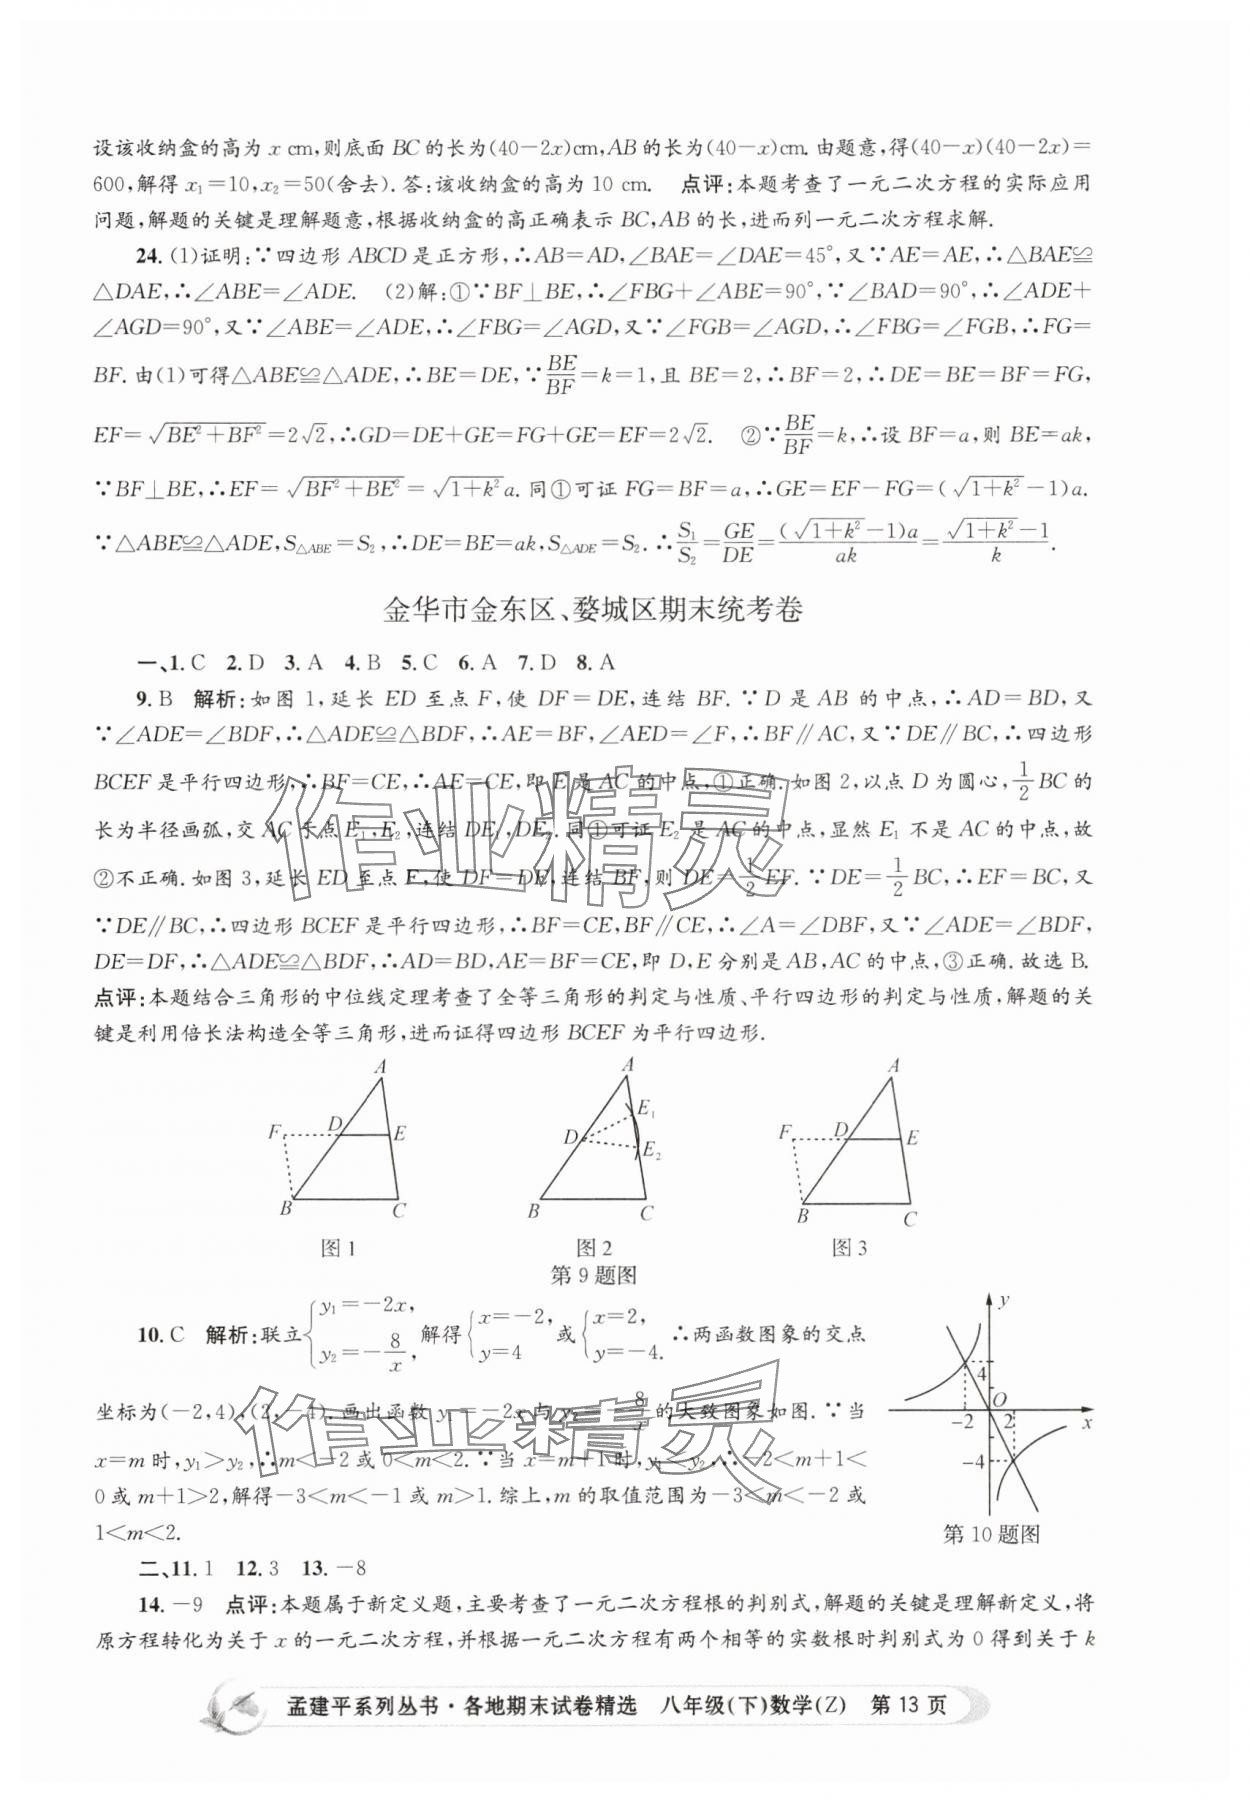 设该收纳盒的高为 x cm,则底面 BC 的长为(40-2x)cm,AB 的长为(40-x)cm.由题意,得(40-x)(40-2x)=
600,解得 x₁=10,x₂=50(舍去).答:该收纳盒的高为 10 cm. 点评:本题考查了一元二次方程的实际应用
问题,解题的关键是理解题意,根据收纳盒的高正确表示 BC,AB 的长,进而列一元二次方程求解.
24. (1)证明:∵四边形 ABCD 是正方形,∴AB=AD,∠BAE=∠DAE=45°,又∵AE=AE,∴△BAE≌
△DAE,∴∠ABE=∠ADE. (2)解:①∵BF⊥BE,∴∠FBG+∠ABE=90°,∵∠BAD=90°,∴∠ADE+
∠AGD=90°,又∵∠ABE=∠ADE,∴∠FBG=∠AGD,又∵∠FGB=∠AGD,∴∠FBG=∠FGB,∴FG=
BF.由(1)可得△ABE≌△ADE,∴BE=DE,∵BE/BF=k=1,且 BE=2,∴BF=2,∴DE=BE=BF=FG,
EF=√(BE²+BF²)=2√2,∴GD=DE+GE=FG+GE=EF=2√2. ②∵BE/BF=k,∴设 BF=a,则 BE=ak,
∵BF⊥BE,∴EF=√(BF²+BE²)=√(1+k²)a.同①可证 FG=BF=a,∴GE=EF-FG=(√(1+k²)-1)a.
∵△ABE≌△ADE,S△ABE=S₂,∴DE=BE=ak,S△ADE=S₂.∴S₁/S₂=GE/DE=(√(1+k²)-1)a/ak=(√(1+k²)-1)/k.
金华市金东区、婺城区期末统考卷
一、1. C 2. D 3. A 4. B 5. C 6. A 7. D 8. A
9. B 解析:如图 1,延长 ED 至点 F,使 DF=DE,连结 BF.∵D 是 AB 的中点,∴AD=BD,又
∵∠ADE=∠BDF,∴△ADE≌△BDF,∴AE=BF,∠AED=∠F,∴BF∥AC,又∵DE∥BC,∴四边形
BCEF 是平行四边形,∴BF=CE,∴AE=CE,即 E 是 AC 的中点,①正确.如图 2,以点 D 为圆心,1/2 BC 的
长为半径画弧,交 AC 于点 E₁,E₂,连结 DE₁,DE₂.同①可证 E₂ 是 AC 的中点,显然 E₁ 不是 AC 的中点,故
②不正确.如图 3,延长 ED 至点 F,使 DF=DE,连结 BF,则 DE=1/2 EF.∵DE=1/2 BC,∴EF=BC,又
∵DE∥BC,∴四边形 BCEF 是平行四边形,∴BF=CE,BF∥CE,∴∠A=∠DBF,又∵∠ADE=∠BDF,
DE=DF,∴△ADE≌△BDF,∴AD=BD,AE=BF=CE,即 D,E 分别是 AB,AC 的中点,③正确.故选 B.
点评:本题结合三角形的中位线定理考查了全等三角形的判定与性质、平行四边形的判定与性质,解题的关
键是利用倍长法构造全等三角形,进而证得四边形 BCEF 为平行四边形.
A
F D E
B C
图 1
A
E₁
D
E₂
B C
图 2
A
F D E
B C
图 3
第 9 题图
10. C 解析:联立{y₁=-2x, y₂=-8/x, 解得{x=-2, y=4 或{x=2, y=-4. ∴两函数图象的交点
坐标为(-2,4),(2,-4).画出函数 y₁=-2x 与 y₂=-8/x 的大致图象如图.∵当
x=m 时,y₁>y₂,∴m<-2 或 0<m<2.∵当 x=m+1 时,y₁<y₂,∴-2<m+1<
0 或 m+1>2,解得-3<m<-1 或 m>1.综上,m 的取值范围为-3<m<-2 或
1<m<2.
y
4
O
-2 2 x
-4
第 10 题图
二、11. 1 12. 3 13. -8
14. -9 点评:本题属于新定义题,主要考查了一元二次方程根的判别式,解题的关键是理解新定义,将
原方程转化为关于 x 的一元二次方程,并根据一元二次方程有两个相等的实数根时判别式为 0 得到关于 k
孟建平系列丛书·各地期末试卷精选 八年级(下)数学(Z) 第 13 页
作业精灵
作业精灵